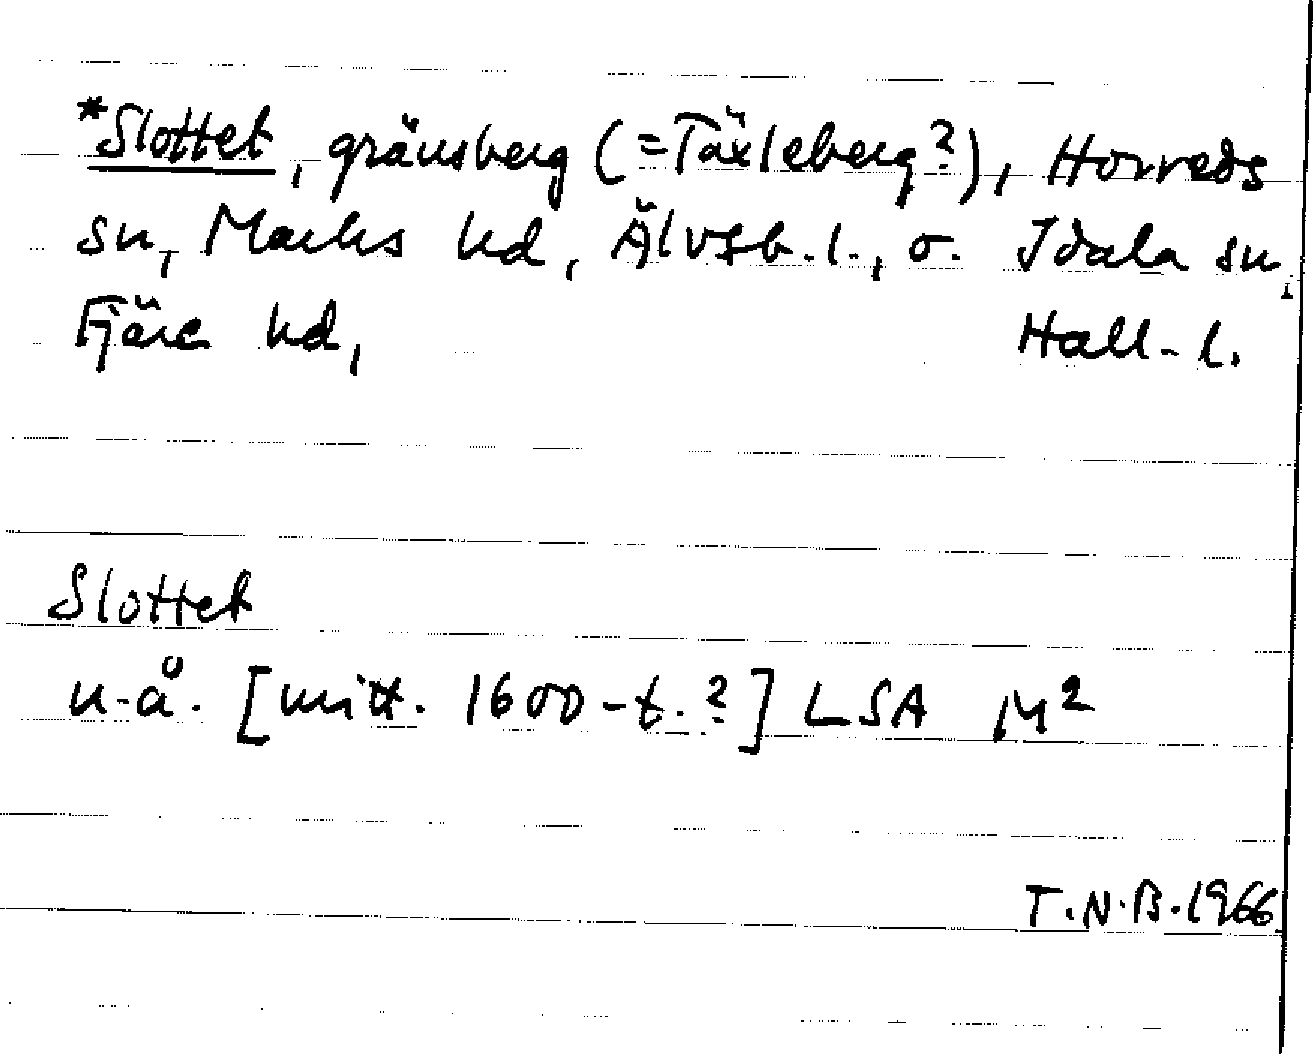 *Slottet, gränsberg (=Täxleberg?), Horreds
sn, Marks hd, Älvsb. l., o. Idala sn,
Fjäre hd, Hall. l.
Slottet
u.å. [mitt. 1600-t.?] LSA M²
T.N.B. 1966